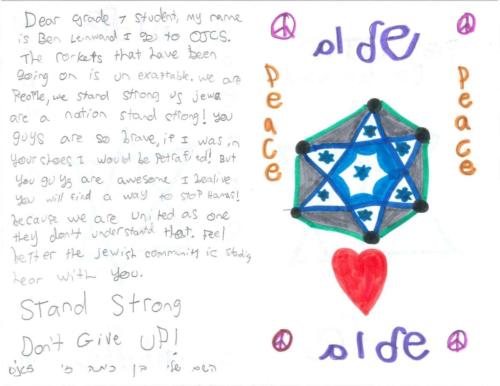 Dear grade 7 student, my name
is Ben I go to OJCS.
The rorkets that have been
going on is un exattable. we are
People, we stand strong us jews
are a nation stand strong! You
guys are so brave, if I was in
your shoes I would be petrafied! But
You guys are awesome I bealive
you will find a way to stop Hamas!
because we are united as one
they don't understand that. Feel
better the jewish community is
hear with you.
Stand Strong
Don't Give UP!
השם שלי בן כיתה
שלום
Peace
Peace
שלום